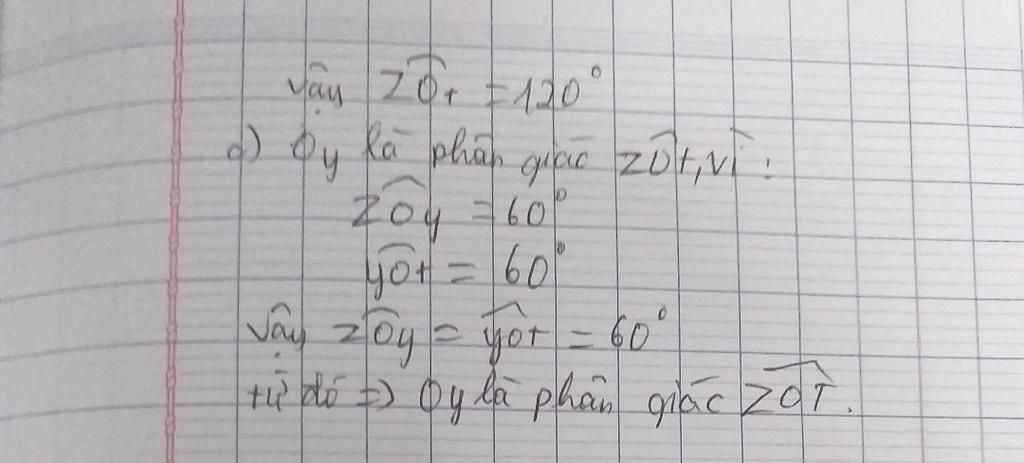 Vậy zÔt = 120°
d) Oy là phân giác zÔt, vì :
zÔy = 60°
yÔt = 60°
Vậy zÔy = yÔt = 60°
từ đó => Oy là phân giác zÔt.